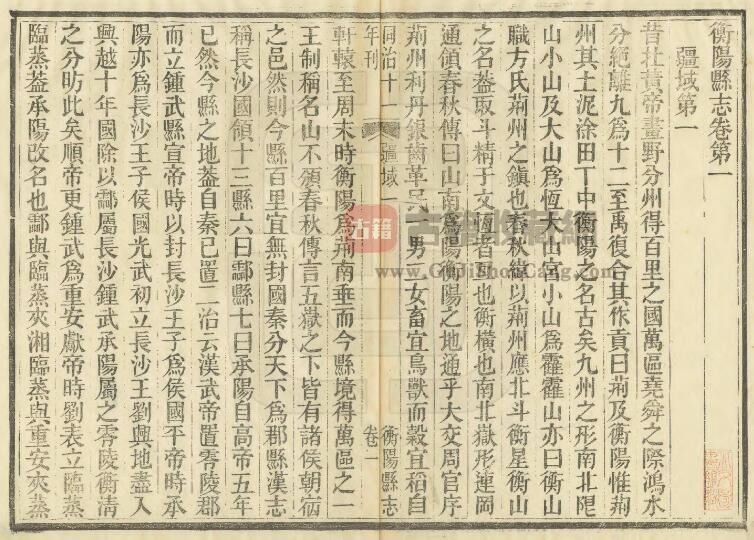 衡陽縣志卷第一
疆域第一
昔在黃帝畫野分州得百里之國萬區堯舜之際鴻水
分絕離九爲十二至禹復合其作貢曰荊及衡陽惟荊
州其土泥涂田下中衡陽之名古矣九州之形南北陧
山小山及大山爲恆大山宮小山爲霍霍山亦曰衡山
職方氏荊州之鎮也春秋緯以荊州應北斗衡星衡山
之名葢取斗精于文恆者亙也衡橫也南北嶽形連岡
通領春秋傳曰山南爲陽衡陽之地通乎大交周官序
荊州利丹銀齒革民一男二女畜宜鳥獸而穀宜稻自
同治十一年刊
疆域一
卷一
衡陽縣志
軒轅至周末時衡陽爲荊南垂而今縣境得萬區之一
王制稱名山不頒春秋傳言五嶽之下皆有諸侯朝宿
之邑然則今縣百里宜無封國秦分天下爲郡縣漢志
稱長沙國領十三縣六曰酃縣七曰承陽自高帝五年
已然今縣之地葢自秦已置二治云漢武帝置零陵郡
而立鍾武縣宣帝時以封長沙王子爲侯國平帝時承
陽亦爲長沙王子侯國光武初立長沙王劉興地盡入
興越十年國除以酃屬長沙鍾武承陽屬之零陵衡清
之分昉此矣順帝更鍾武爲重安獻帝時劉表立臨蒸
臨蒸葢承陽改名也酃與臨蒸夾湘臨蒸與重安夾蒸
古籍
古籍收藏網
www.GuJiShouCang.com